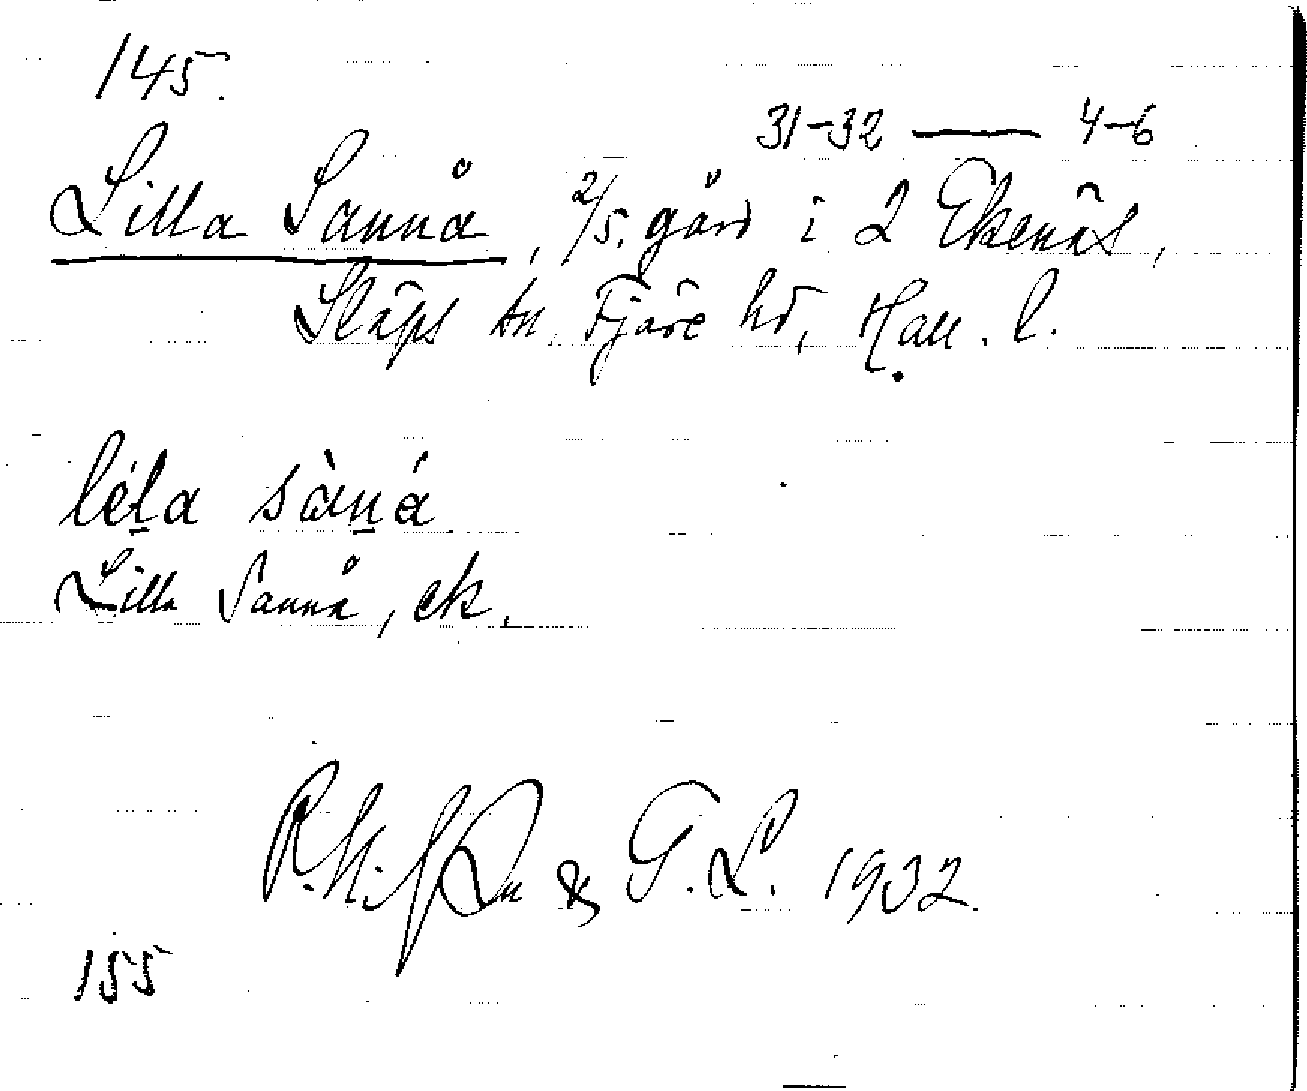 145.
31-32 — 4-6
Lilla Sannå, 2/5. gård i 2 Ekenäs,
Släps sn. Fjäre hd, Hall. l.
léḻa sàṉá
Lilla Sannå, ek.
& G. L. 1932.
155